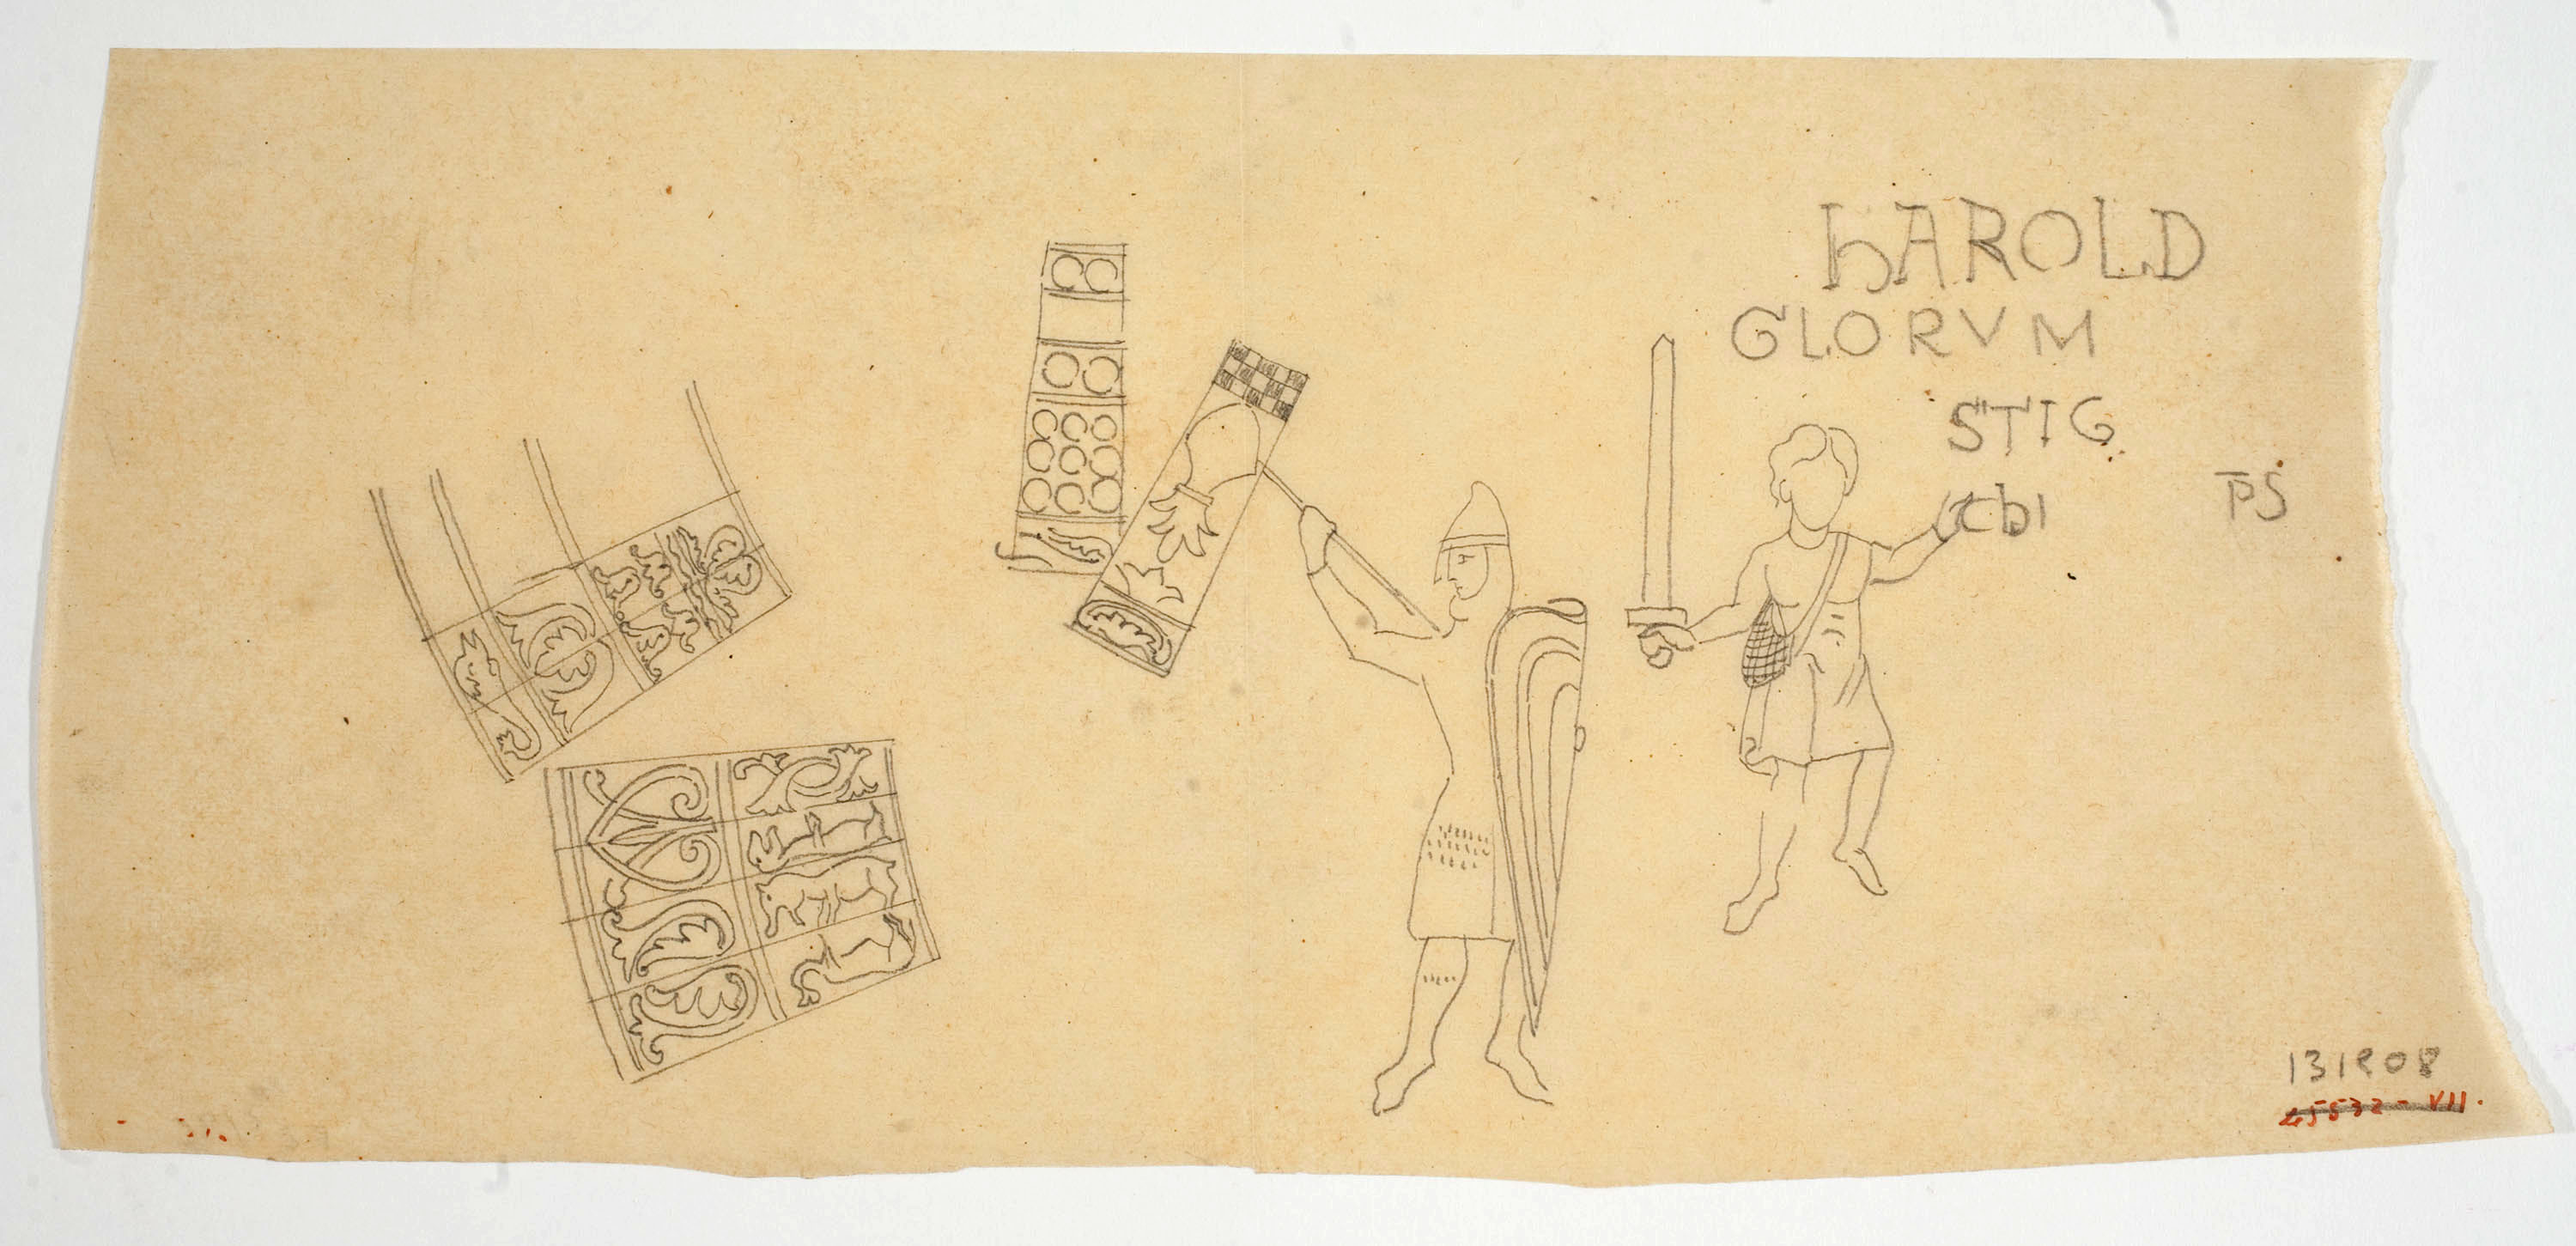 hAROLD
GLORVM
STIG
cbı
p̅S
131908
45532-VII.